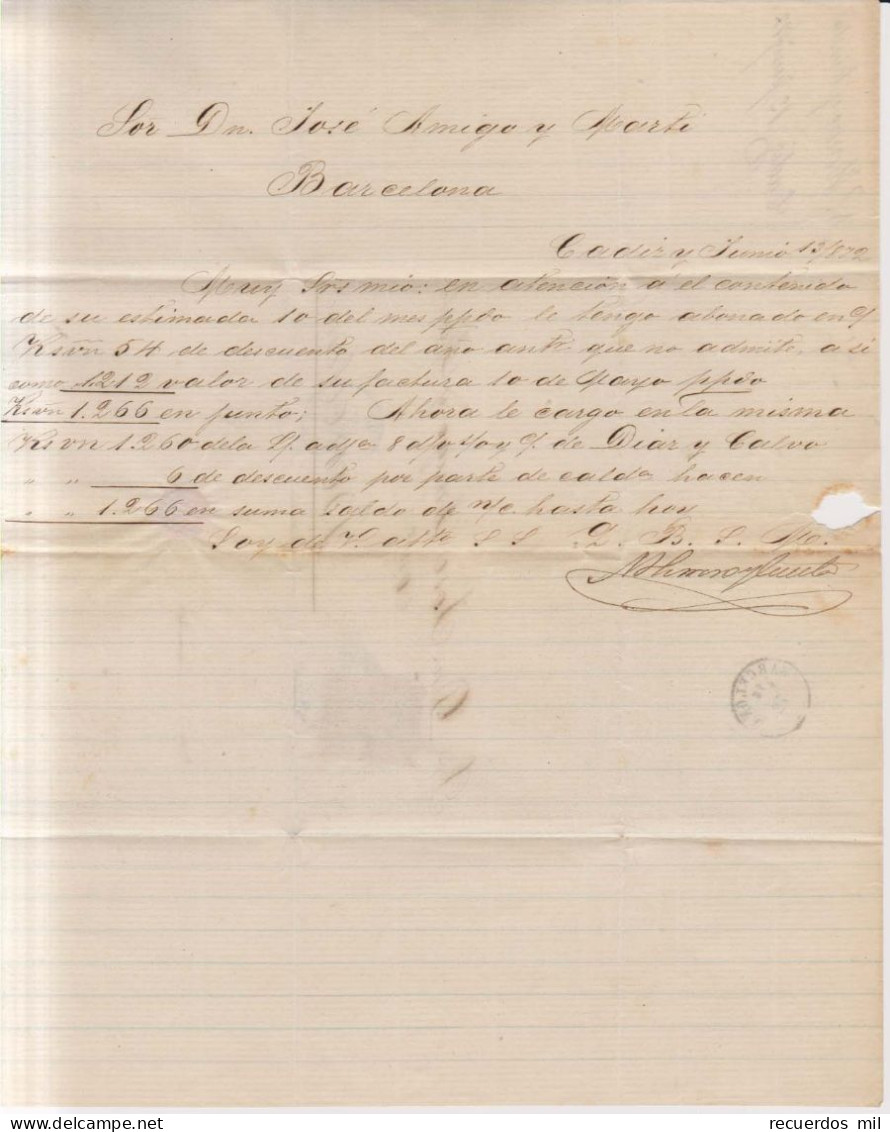 Sor Dn. José Amigo y Marti
Barcelona
Cadiz y Junio 13/872
Muy Srs mio: en atención á el contenido
de su estimada 10 del mes ppdo le tengo abonado en
Rsvn 54 de descuento del año antr que no admite, asi
como 1.212 valor de su factura 10 de Mayo ppdo
Rsvn 1.266 en junto; Ahora le cargo en la misma
Rsvn 1.260 de la de Diaz y Calvo
" " 6 de descuento por parte de hacen
" " 1.266 en suma saldo de n/c. hasta hoy
Soy de V. atto S S Q. B. S. M.
BARCELONA
recuerdos mil